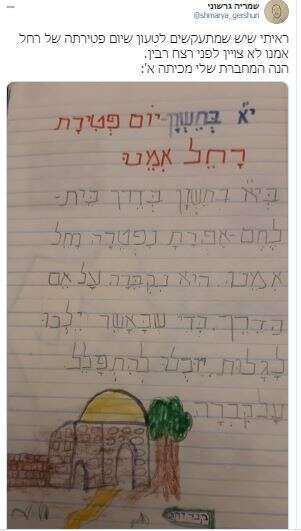 שמריה גרשוני
@shmarya_gershun
ראיתי שיש שמתעקשים לטעון שיום פטירתה של רחל
אמנו לא צויין לפני רצח רבין.
הנה המחברת שלי מכיתה א':
י"א בְּחֶשְׁוָן-יוֹם פְּטִירַת
רָחֵל אִמֵּנוּ
בְּי"א בְּחֶשְׁוָן בְּדֶרֶךְ בֵּית-
לֶחֶם-אֶפְרָתָ נִפְטְרָה רָחֵל
אִמֵּנוּ. הִיא נִקְבְּרָה עַל אֵם
הַדֶּרֶךְ. כְּדֵי שֶׁכַּאֲשֶׁר יֵלְכוּ
לַגָּלוּת יוּכְלוּ לְהִתְפַּלֵּל
עַל קִבְרָהּ.